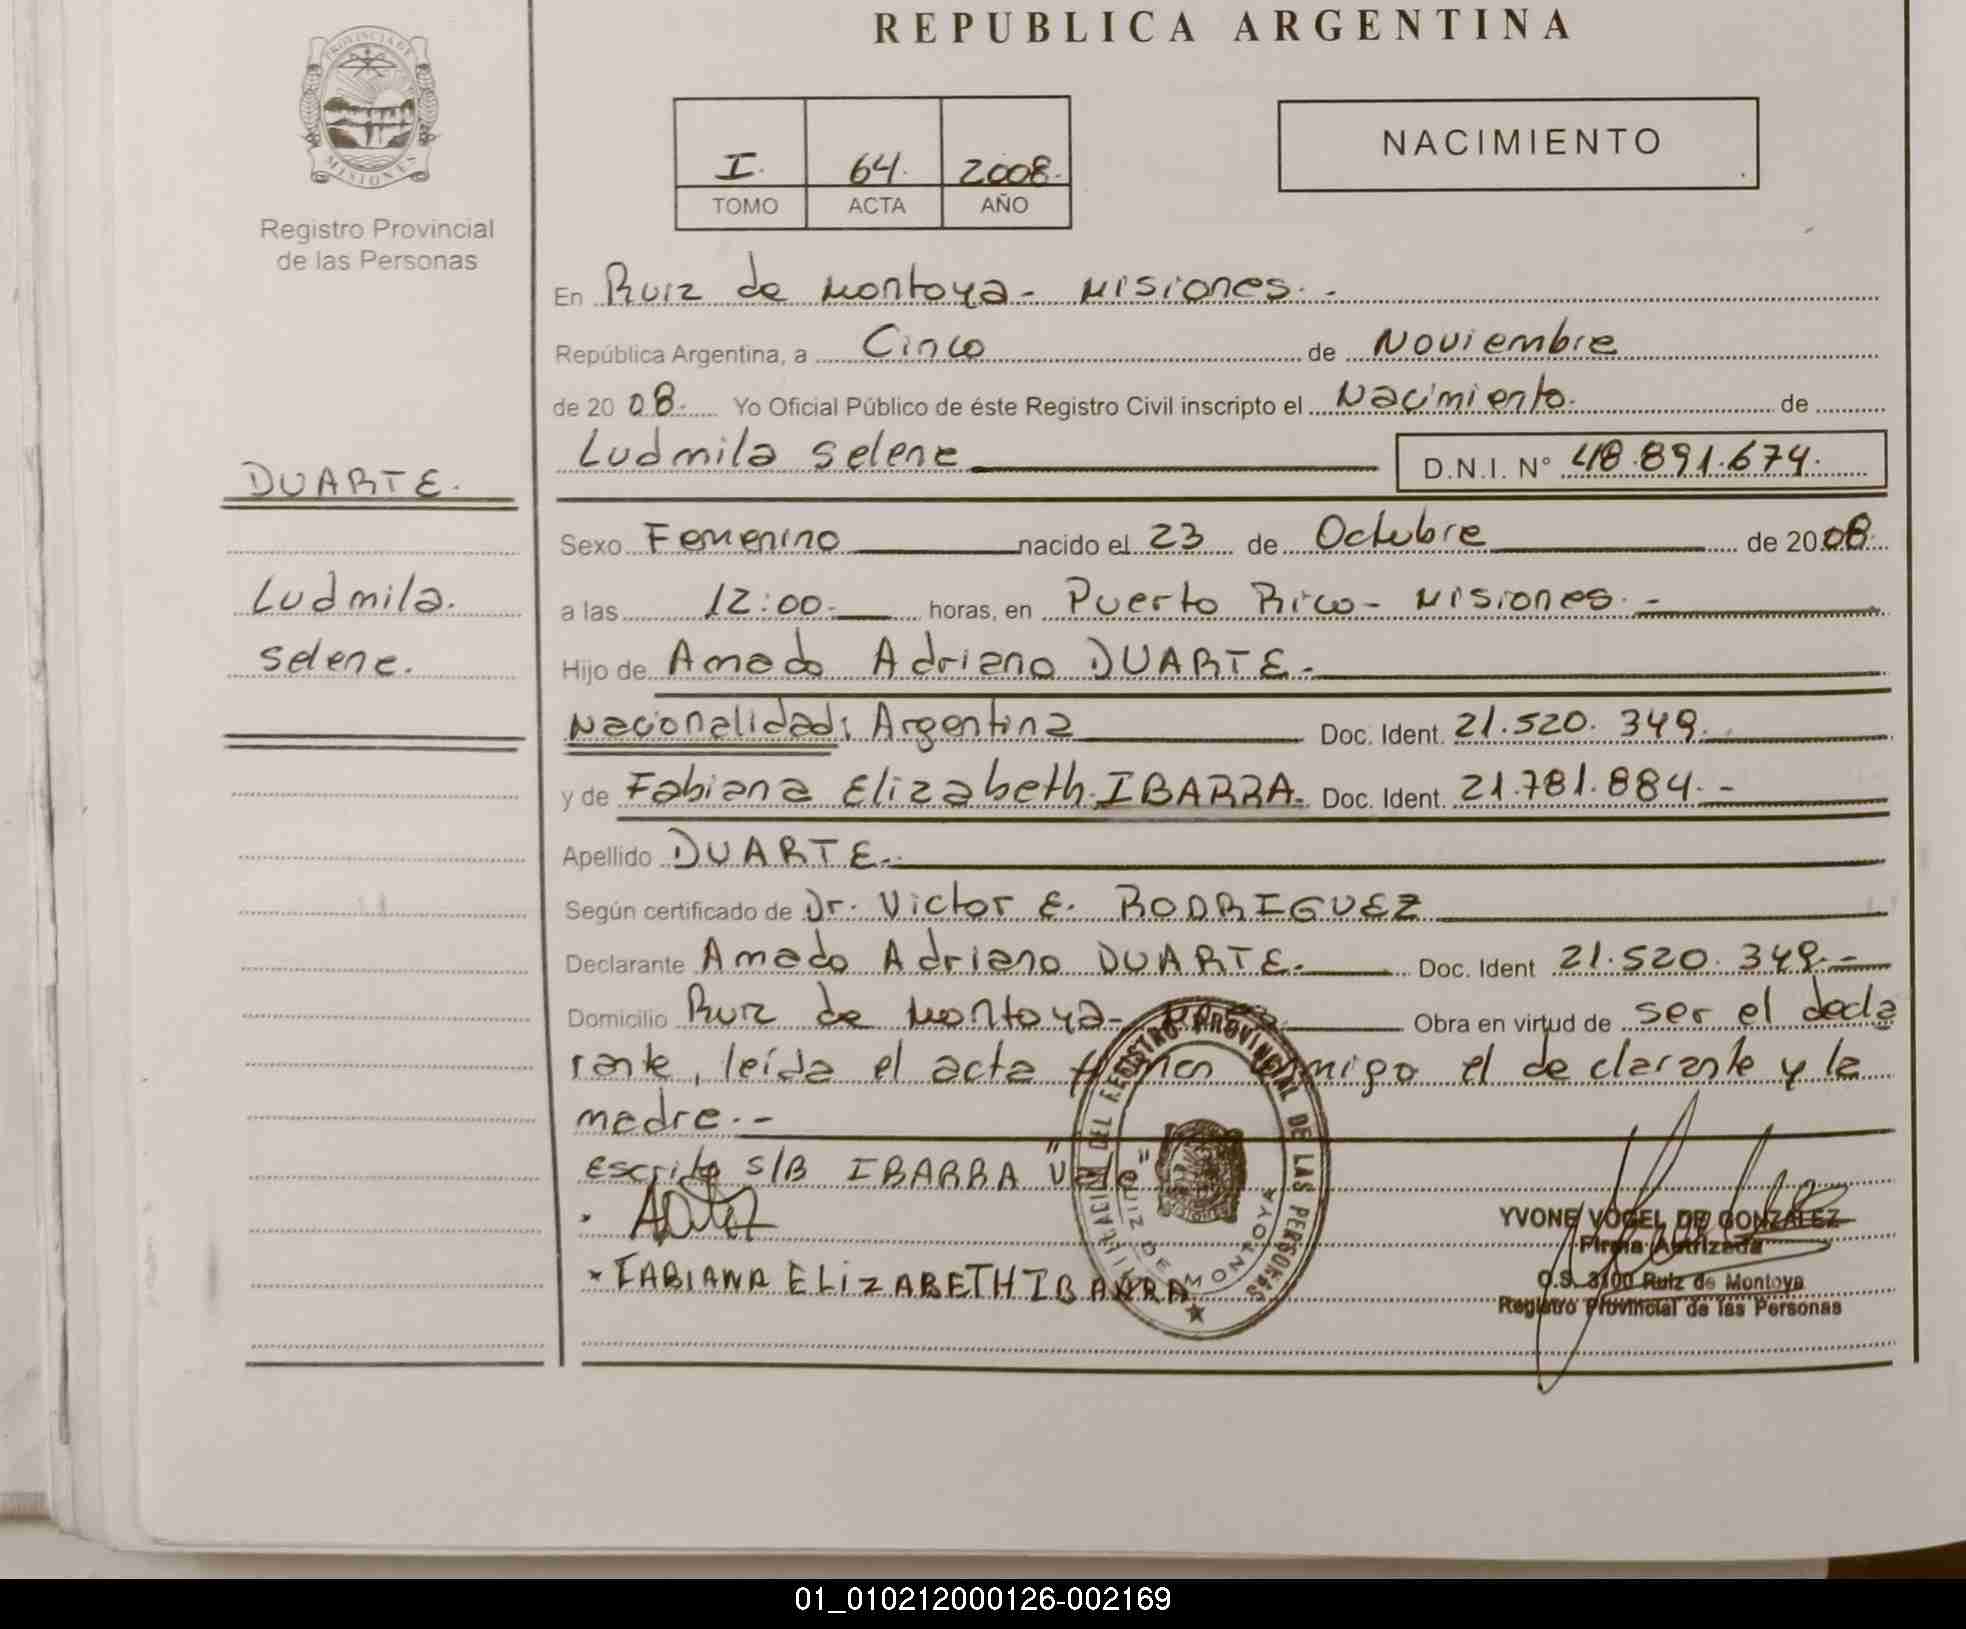 REPUBLICA ARGENTINA
PROVINCIA DE
MISIONES
Registro Provincial
de las Personas
I. 64. 2008.
TOMO ACTA AÑO
NACIMIENTO
En Ruiz de Montoya- Misiones.-
República Argentina, a Cinco de Noviembre
de 2008. Yo Oficial Público de éste Registro Civil inscripto el Nacimiento. de
Ludmila Selene D.N.I. N° 48.891.674.
DUARTE.
Ludmila.
Selene.
Sexo Femenino nacido el 23 de Octubre de 2008.
a las 12:00. horas, en Puerto Rico- Misiones.-
Hijo de Amado Adriano DUARTE.-
Nacionalidad: Argentina Doc. Ident. 21.520.349.
y de Fabiana Elizabeth IBARRA. Doc. Ident. 21.781.884.-
Apellido DUARTE.-
Según certificado de Dr. Victor E. RODRIGUEZ
Declarante Amado Adriano DUARTE.- Doc. Ident 21.520.349.-
Domicilio Ruiz de Montoya- Obra en virtud de ser el decla
rante, leída el acta firman conmigo el declarante y la
madre.-
Escrito s/B IBARRA "Vale"=
FABIANA ELIZABETH IBARRA
DEL REGISTRO PROVINCIAL DE LAS PERSONAS
RUIZ DE MONTOYA
YVONE VOGEL DE GONZALEZ
Firma Autrizada
O.S. 3100 Ruiz de Montoya
Registro Provincial de las Personas
01_010212000126-002169